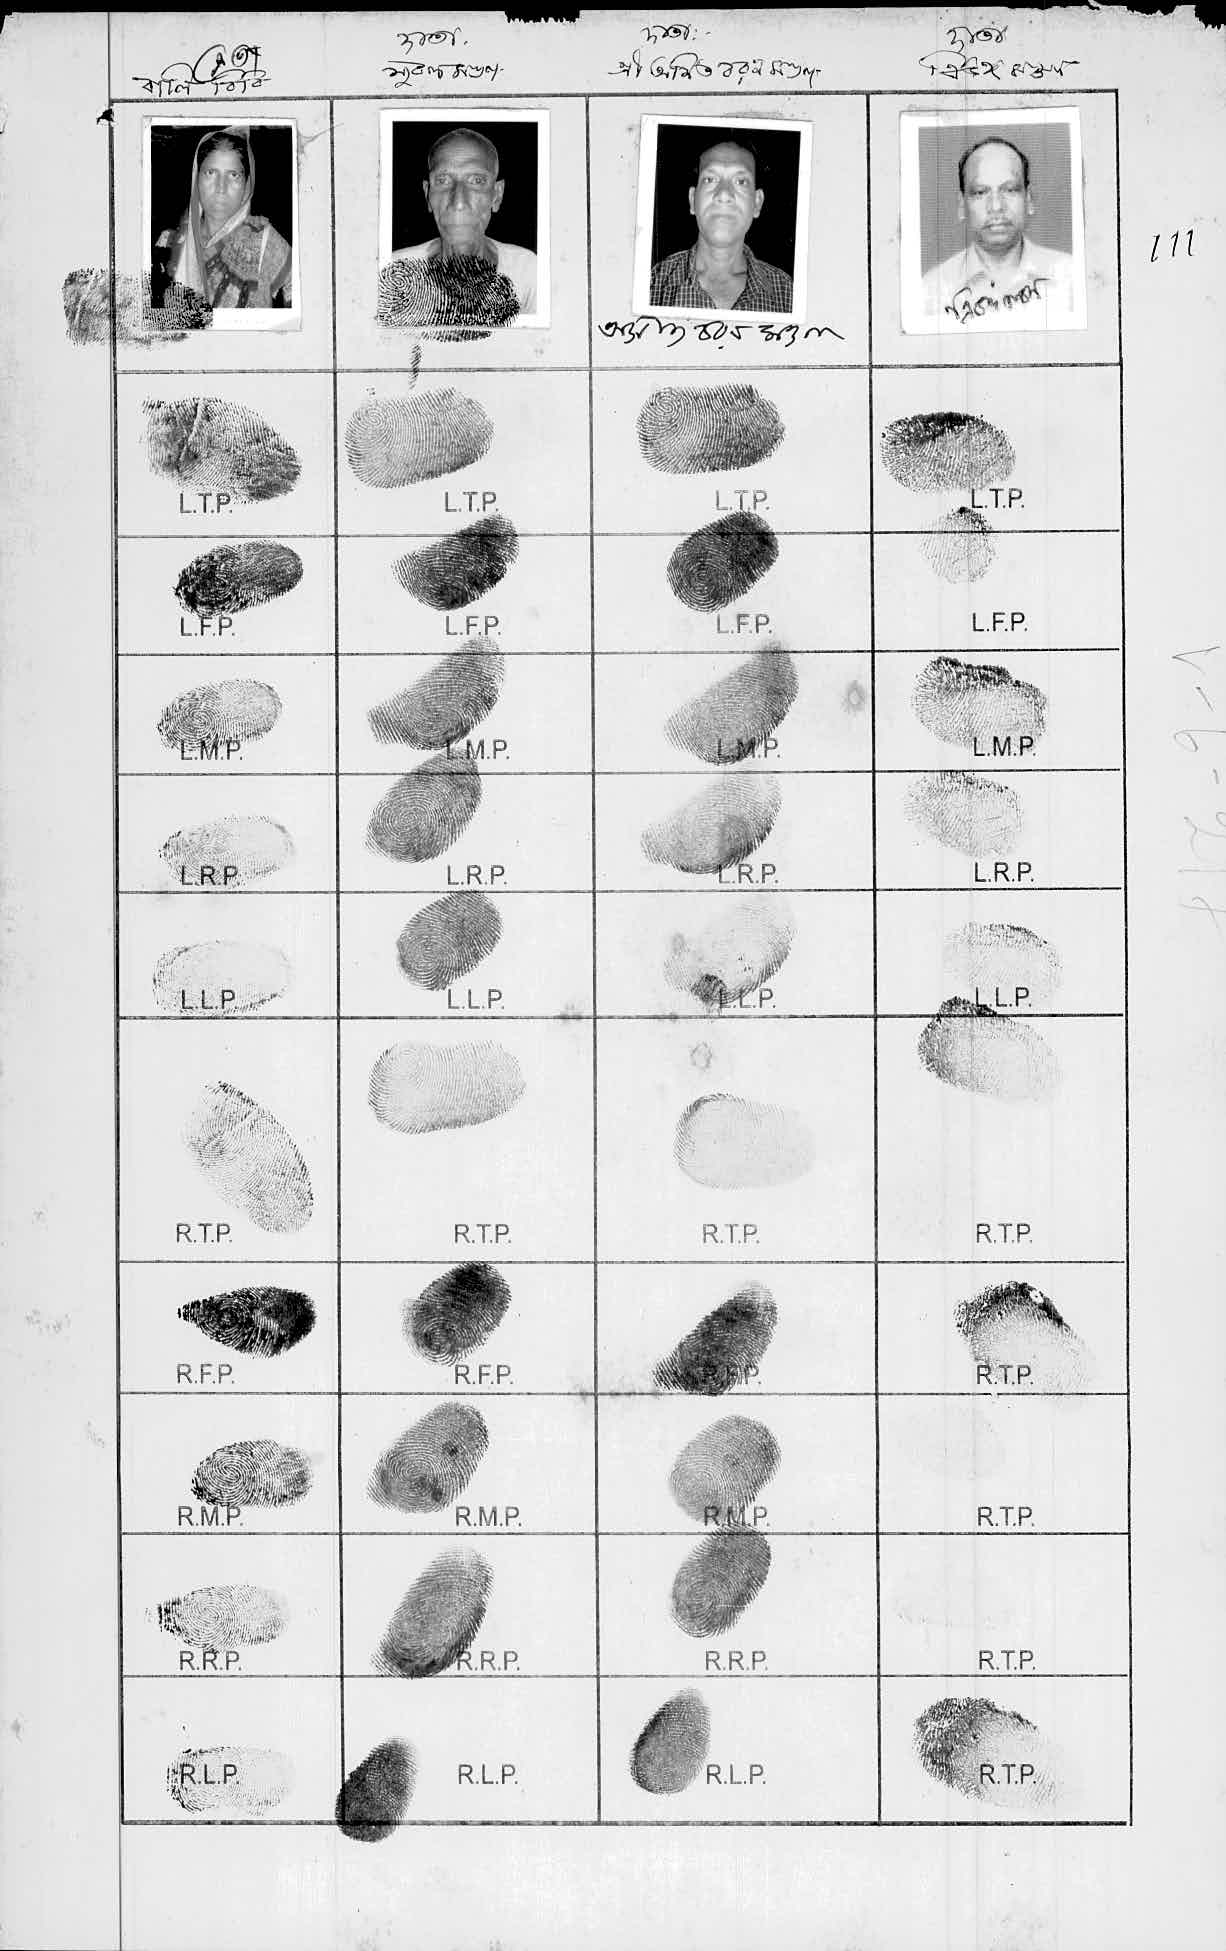 দাতা. দাতা:- দাতা
বালি বিবি সুবল মণ্ডল শ্রী অসিত বরণ মণ্ডল
অসিত বরণ মণ্ডল
111
L.T.P. L.T.P. L.T.P. L.T.P.
L.F.P. L.F.P. L.F.P. L.F.P.
L.M.P. L.M.P. L.M.P. L.M.P.
L.R.P. L.R.P. L.R.P. L.R.P.
L.L.P. L.L.P. L.L.P. L.L.P.
R.T.P. R.T.P. R.T.P. R.T.P.
R.F.P. R.F.P. R.F.P. R.T.P.
R.M.P. R.M.P. R.M.P. R.T.P.
R.R.P. R.R.P. R.R.P. R.T.P.
R.L.P. R.L.P. R.L.P. R.T.P.